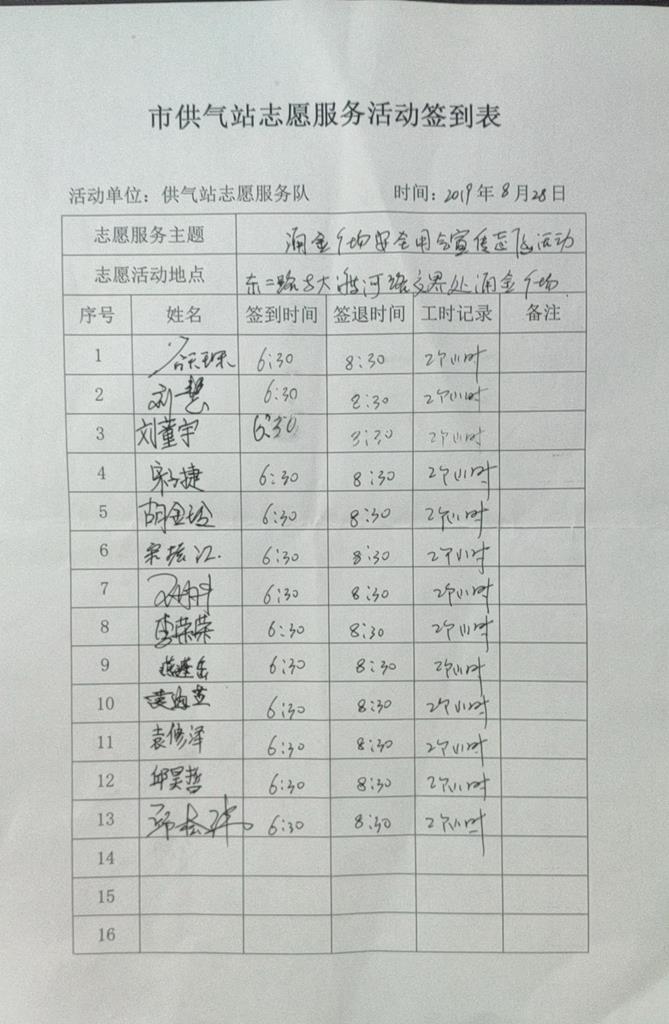 市供气站志愿服务活动签到表
活动单位：供气站志愿服务队 时间：2019年8月28日
志愿服务主题 涌金广场安全用气宣传志愿活动
志愿活动地点 东二路与大渡河路交界处涌金广场
序号 姓名 签到时间 签退时间 工时记录 备注
1 6:30 8:30 2个小时
2 刘慧 6:30 8:30 2个小时
3 刘董宇 6:30 8:30 2个小时
4 6:30 8:30 2个小时
5 胡金玲 6:30 8:30 2个小时
6 6:30 8:30 2个小时
7 6:30 8:30 2个小时
8 李荣荣 6:30 8:30 2个小时
9 6:30 8:30 2个小时
10 6:30 8:30 2个小时
11 袁修泽 6:30 8:30 2个小时
12 邱昊哲 6:30 8:30 2个小时
13 6:30 8:30 2个小时
14
15
16